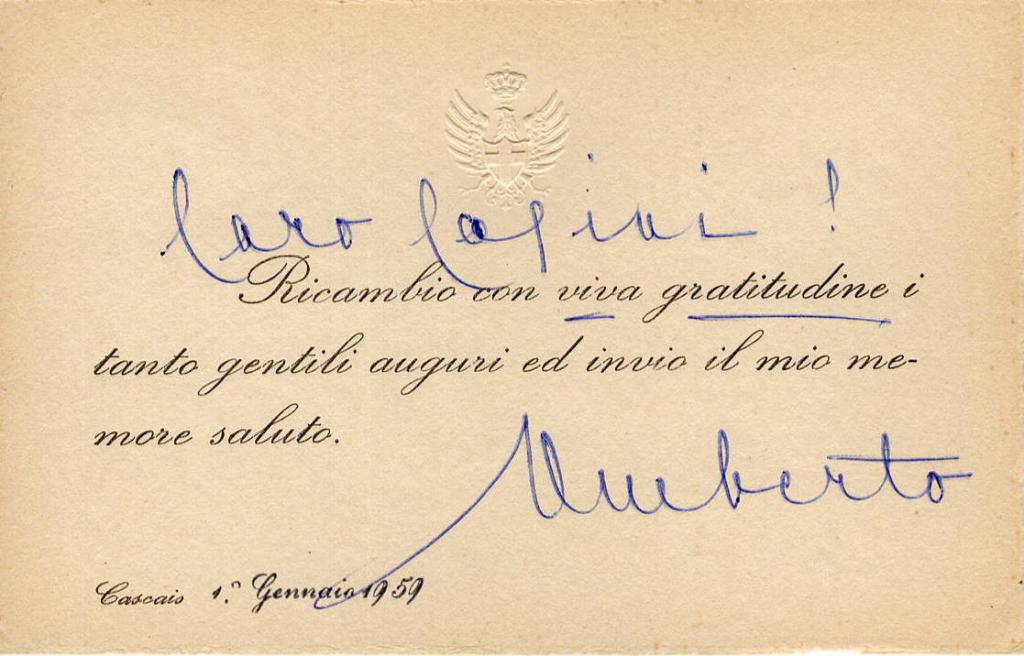 Caro !
Ricambio con viva gratitudine i
tanto gentili auguri ed invio il mio me-
more saluto.
Umberto
Cascais 1.° Gennaio 1959